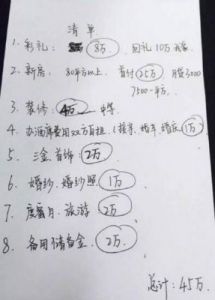 清单
1. 彩礼: 8万 回礼10万
2. 新房: 80平方以上. 首付25万 月贷3000
7500一平方.
3. 装修: 4万 中等
4. 办酒席费用双方自担. 婚车 婚庆 1万
5. 三金.首饰: 2万
6. 婚纱.婚纱照 1万
7. 度蜜月.旅游 2万
8. 备用储备金. 2万.
总计: 45万